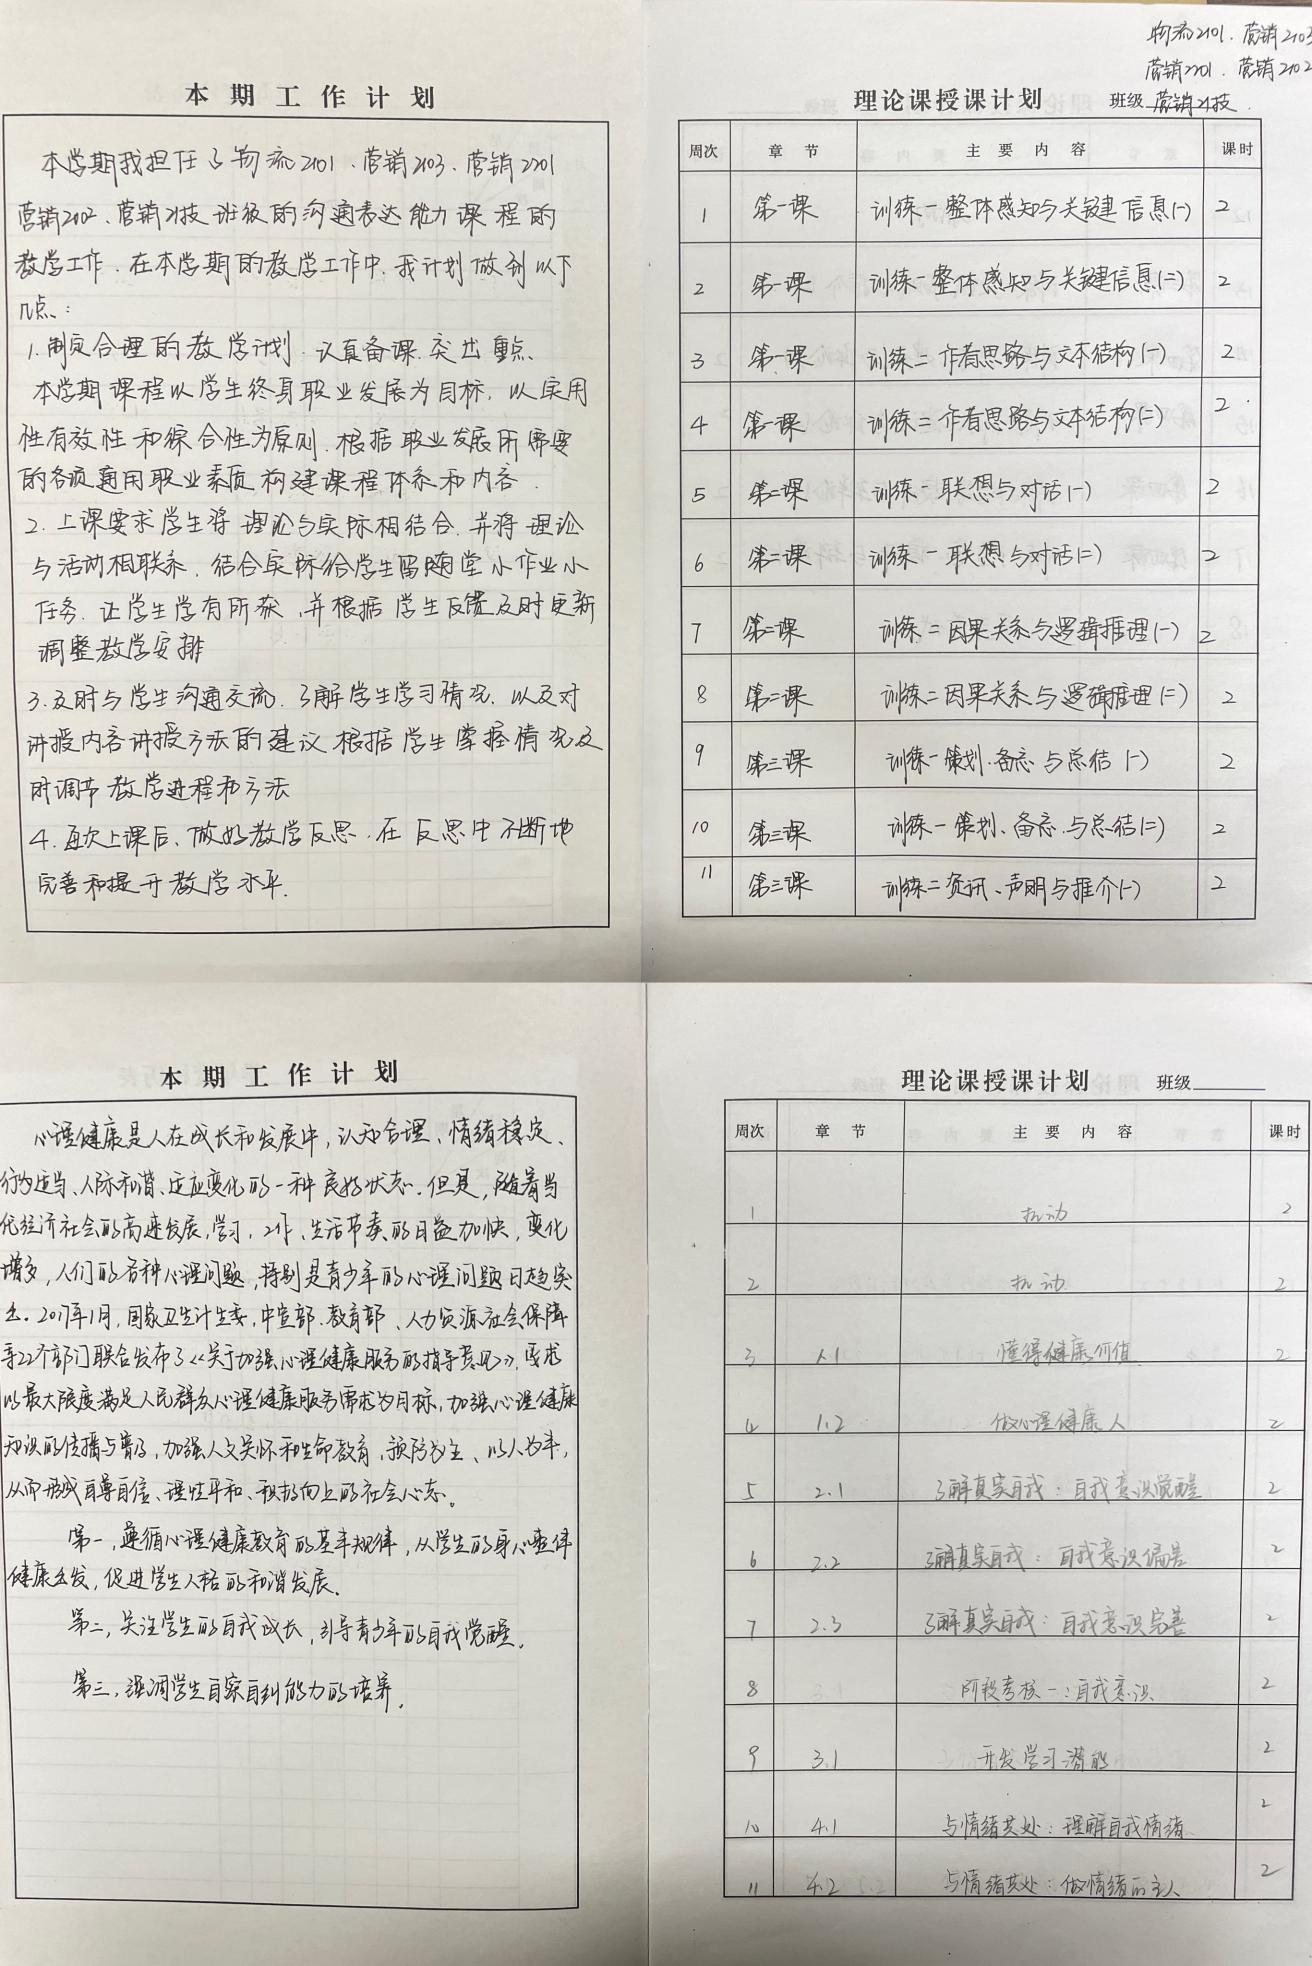 本期工作计划
本学期我担任了物流2101、营销2103、营销2201
营销2102、营销21技班级的沟通表达能力课程的
教学工作、在本学期的教学工作中、我计划做到以下
几点、：
1、制定合理的教学计划、认真备课、突出重点、
本学期课程以学生终身职业发展为目标、以实用
性有效性和综合性为原则、根据职业发展所需要
的各项通用职业素质构建课程体系和内容、
2、上课要求学生将理论与实际相结合、并将理论
与活动相联系、结合实际给学生留随堂小作业小
任务、让学生学有所获、并根据学生反馈及时更新
调整教学安排
3、及时与学生沟通交流、了解学生学习情况、以及对
讲授内容讲授方法的建议根据学生掌握情况及
时调节教学进程和方法
4、每次上课后、做好教学反思、在反思中不断地
完善和提升教学水平、
物流2101、营销2103
营销2201、营销2102
理论课授课计划 班级 营销21技、
周次 章节 主要内容 课时
1 第一课 训练一整体感知与关键信息(一) 2
2 第一课 训练一整体感知与关键信息(二) 2
3 第一课 训练二作者思路与文本结构(一) 2
4 第一课 训练二作者思路与文本结构(二) 2
5 第二课 训练一联想与对话(一) 2
6 第二课 训练一联想与对话(二) 2
7 第二课 训练二因果关系与逻辑推理(一) 2
8 第二课 训练二因果关系与逻辑推理(二) 2
9 第三课 训练一策划、备忘与总结(一) 2
10 第三课 训练一策划、备忘、与总结(二) 2
11 第三课 训练二资讯、声明与推介(一) 2
本期工作计划
心理健康是人在成长和发展中，认知合理、情绪稳定、
行为适当、人际和谐、适应变化的一种良好状态。但是，随着当
代经济社会的高速发展，学习、工作、生活节奏的日益加快，变化
增多，人们的各种心理问题，特别是青少年的心理问题日趋突
出。2017年1月，国家卫生计生委、中宣部、教育部、人力资源社会保障
等22个部门联合发布了《关于加强心理健康服务的指导意见》，要求
以最大限度满足人民群众心理健康服务需求为目标，加强心理健康
知识的传播与普及，加强人文关怀和生命教育，预防为主、以人为本，
从而形成自尊自信、理性平和、积极向上的社会心态。
第一，遵循心理健康教育的基本规律，从学生的身心整体
健康出发，促进学生人格的和谐发展。
第二，关注学生的自我成长，引导青少年的自我觉醒。
第三，强调学生自察自纠能力的培养。
理论课授课计划 班级
周次 章节 主要内容 课时
1 机动 2
2 机动 2
3 1.1 懂得健康价值 2
4 1.2 做心理健康人 2
5 2.1 了解真实自我：自我意识觉醒 2
6 2.2 了解真实自我：自我意识偏差 2
7 2.3 了解真实自我：自我意识完善 2
8 阶段考核一：自我意识 2
9 3.1 开发学习潜能 2
10 4.1 与情绪共处：理解自我情绪 2
11 4.2 与情绪共处：做情绪的主人 2